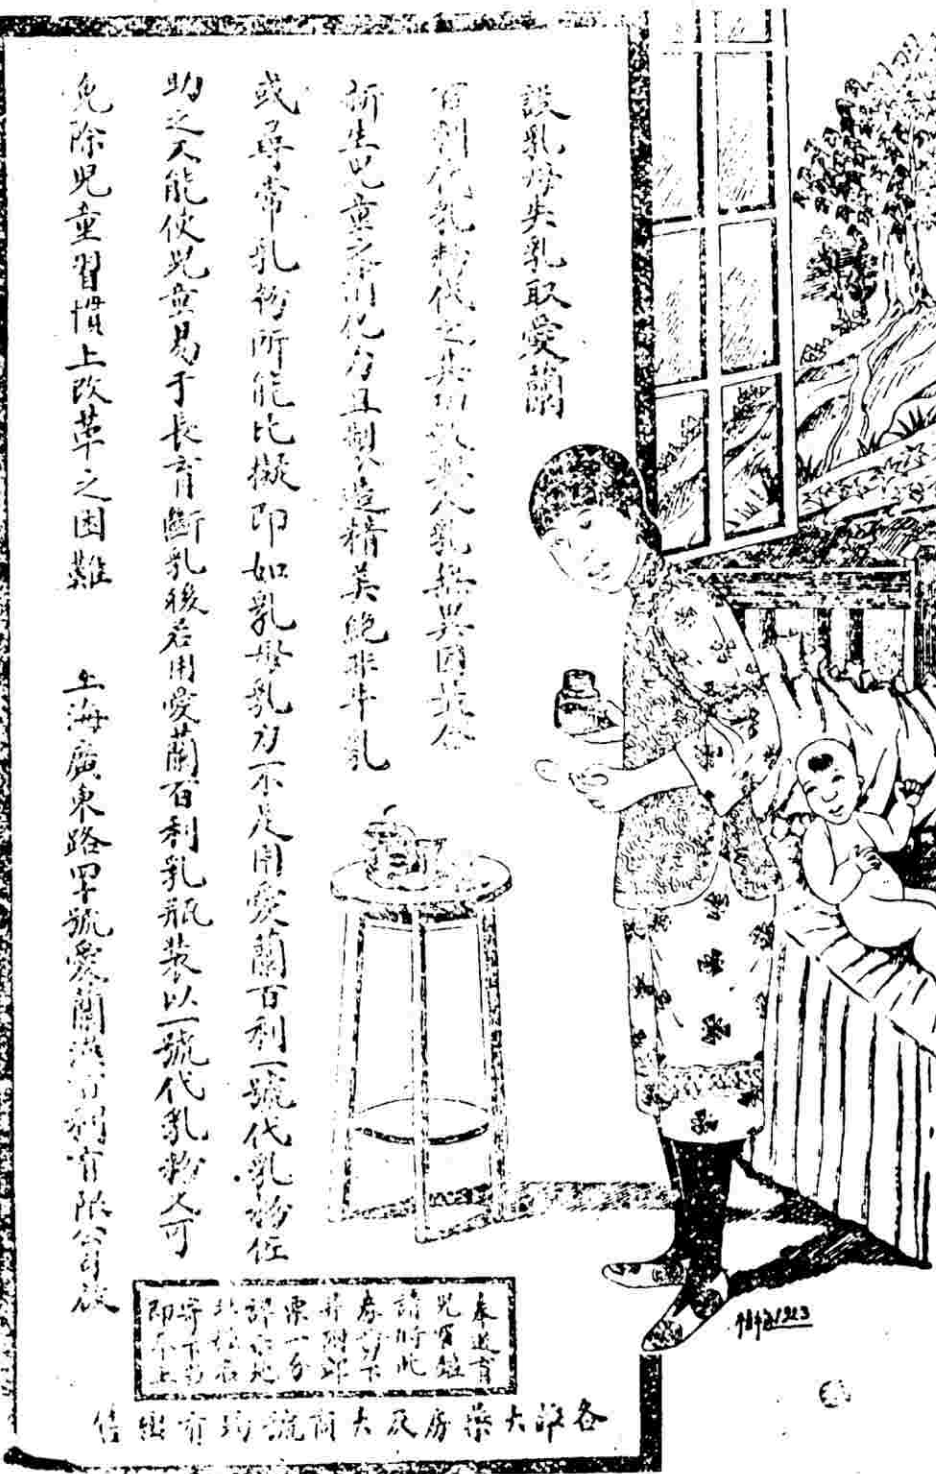 設乳母失乳取愛蘭
百利代乳粉代之其功效與人乳無異因其合
新生兒童之消化力且製造精美絕非牛乳
或尋常乳粉所能比擬即如乳母乳力不足用愛蘭百利一號代乳粉佐
助之又能使兒童易于長育斷乳後若用愛蘭百利乳瓶裝以一號代乳粉又可
免除兒童習慣上改革之困難 上海廣東路四十號愛蘭漢百利有限公司啟
奉送育
兒寶鑑
請將此
券剪下
并附郵
票一分
詳寫地
址姓名
寄下當
即奉上
各詳大藥房及大商號均有出售
1923